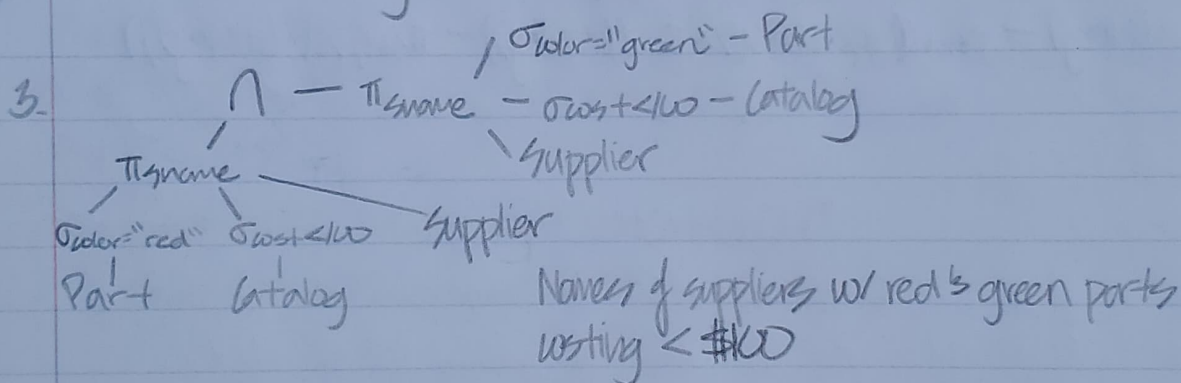 σcolor="green" - Part
3. ∩ — πsname - σcost<100 - Catalog
Supplier
πsname
σcolor="red" σcost<100 Supplier
Part Catalog
Names of suppliers w/ red & green parts
costing < $100